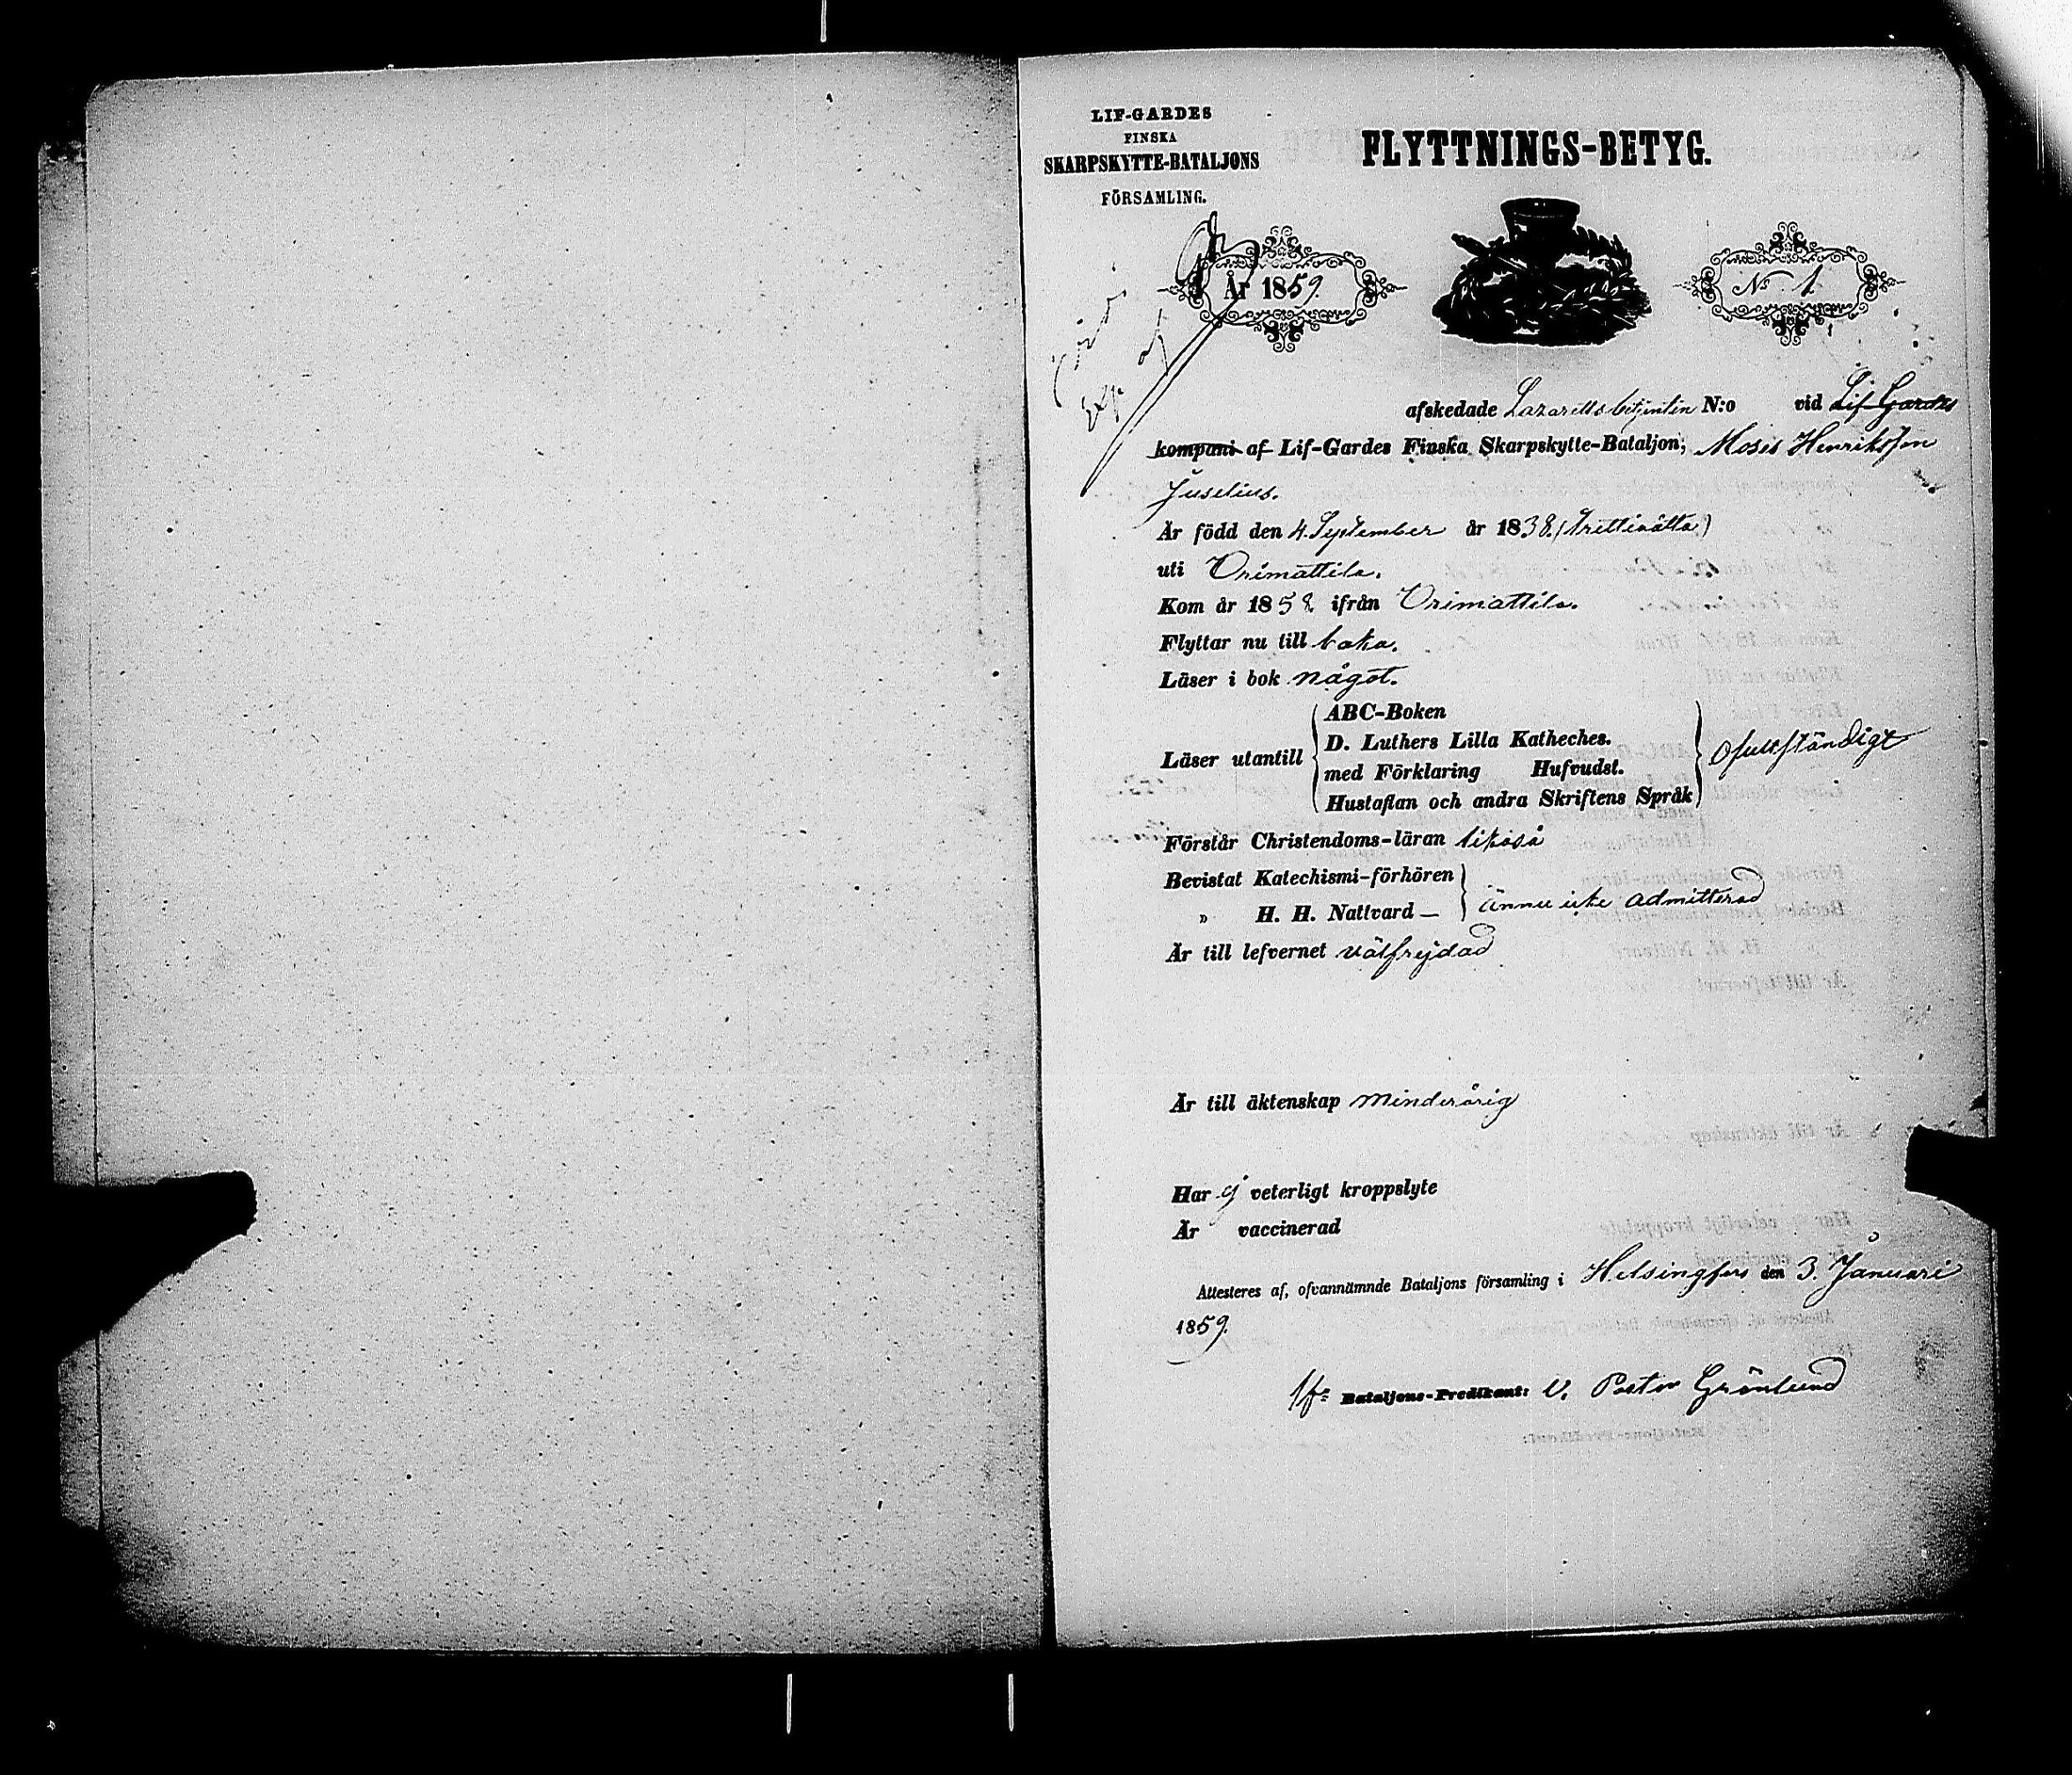 LIF-GARDES
FINSKA
SKARPSKYTTE-BATALJONS
FÖRSAMLING.
FLYTTNINGS-BETYG.
År 1859.
No 1
Exp. af
afskedade Lazarettsbetjenten N:o vid Lif Gardes
kompani af Lif-Gardes Finska Skarpskytte-Bataljon, Moses Henriksson
Juselius.
Är född den 4. September år 1838. (trettioåtta)
uti Orimattila.
Kom år 1858 ifrån Orimattila.
Flyttar nu till baka.
Läser i bok något.
Läser utantill
ABC-Boken
D. Luthers Lilla Katheches.
med Förklaring Hufvudst.
Hustaflan och andra Skriftens Språk
ofullständigt
Förstår Christendoms-läran likaså
Bevistat Katechismi-förhören
" H. H. Nattvard —
ännu icke admitterad
Är till lefvernet välfrejdad
Är till äktenskap minderårig
Har ej veterligt kroppslyte
Är vaccinerad
Attesteres af, ofvannämnde Bataljons församling i Helsingfors den 3. Januari
1859.
Bataljons-Predikant: V. Pastor Grönlund